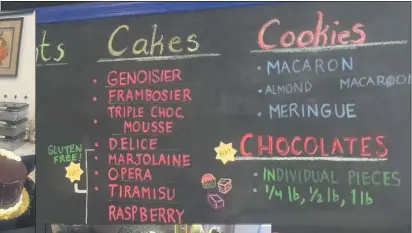 ts
Cakes
• GENOISIER
• FRAMBOSIER
TRIPLE CHOC
MOUSSE
GLUTEN
FREE!
• DELICE
• MARJOLAINE
• OPERA
• TIRAMISU
RASPBERRY
Cookies
• MACARON
• ALMOND MACAROON
• MERINGUE
CHOCOLATES
• INDIVIDUAL PIECES
• 1/4 lb, 1/2 lb, 1 lb